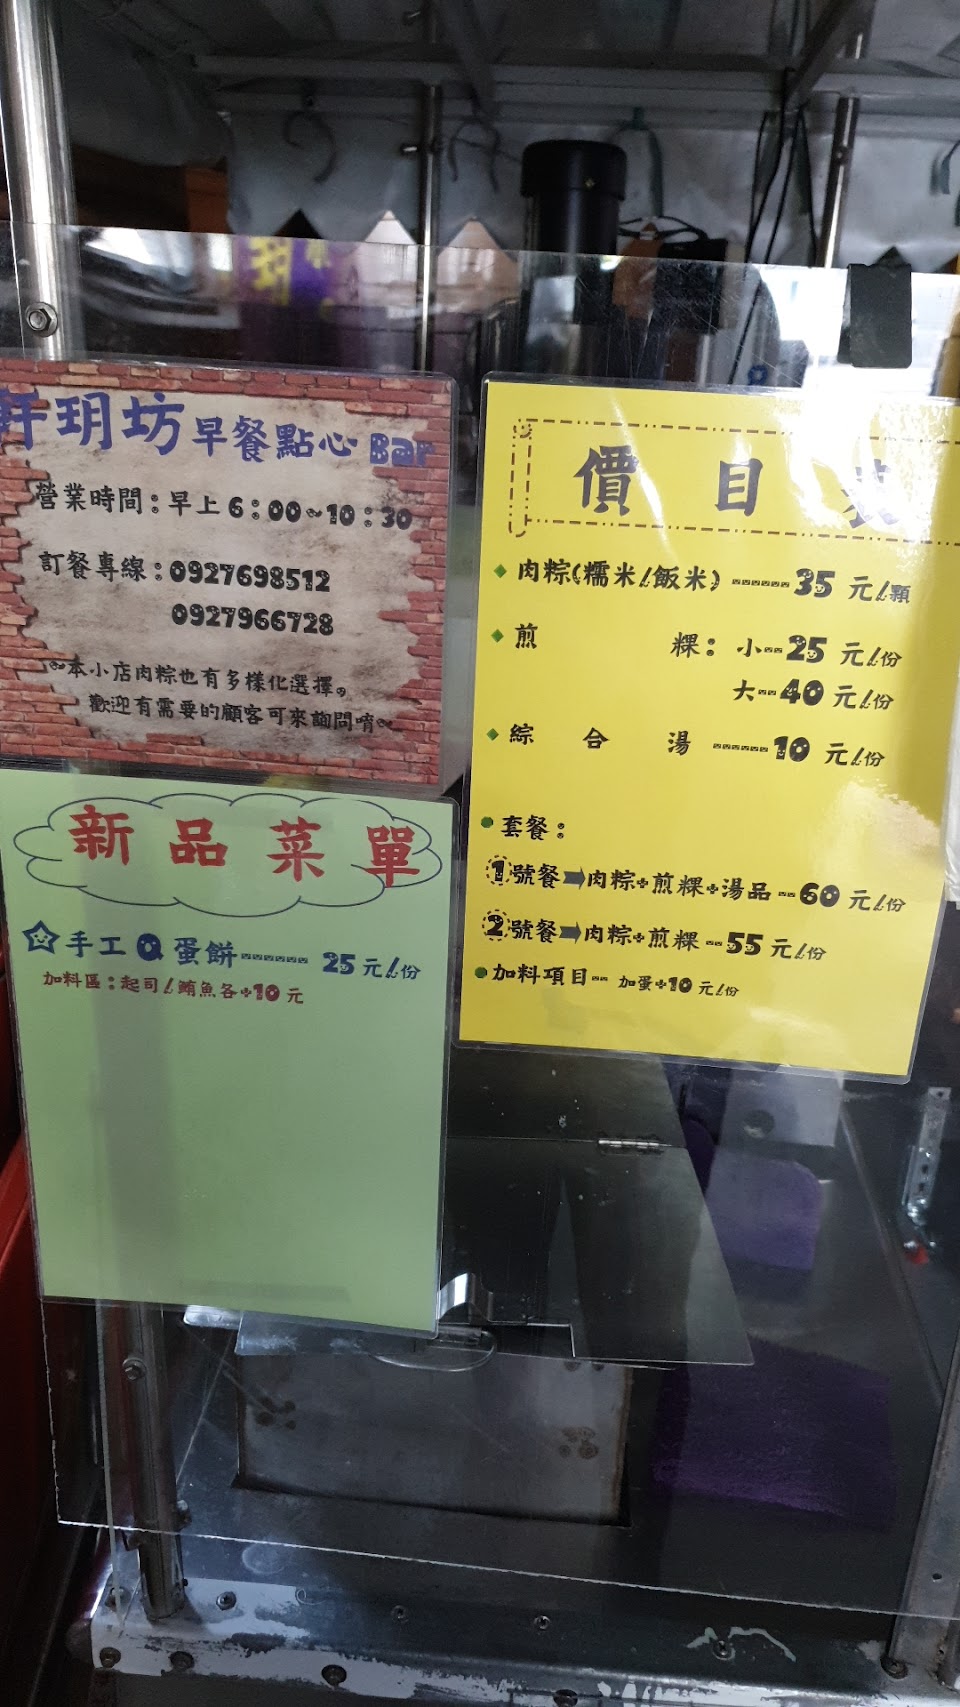 玥坊早餐點心 Bar
營業時間：早上 6：00~10：30
訂餐專線：0927698512
0927966728
~本小店肉粽也有多樣化選擇。
歡迎有需要的顧客可來詢問唷~
新品菜單
手工 Q 蛋餅------ 25 元/份
加料區：起司/鮪魚各+10 元
價目表
肉粽(糯米/飯米) ------35 元/顆
煎 粿：小--25 元/份
大--40 元/份
綜合湯 ------10 元/份
套餐：
1號餐➡肉粽+煎粿+湯品--60 元/份
2號餐➡肉粽+煎粿--55 元/份
加料項目-- 加蛋+10 元/份